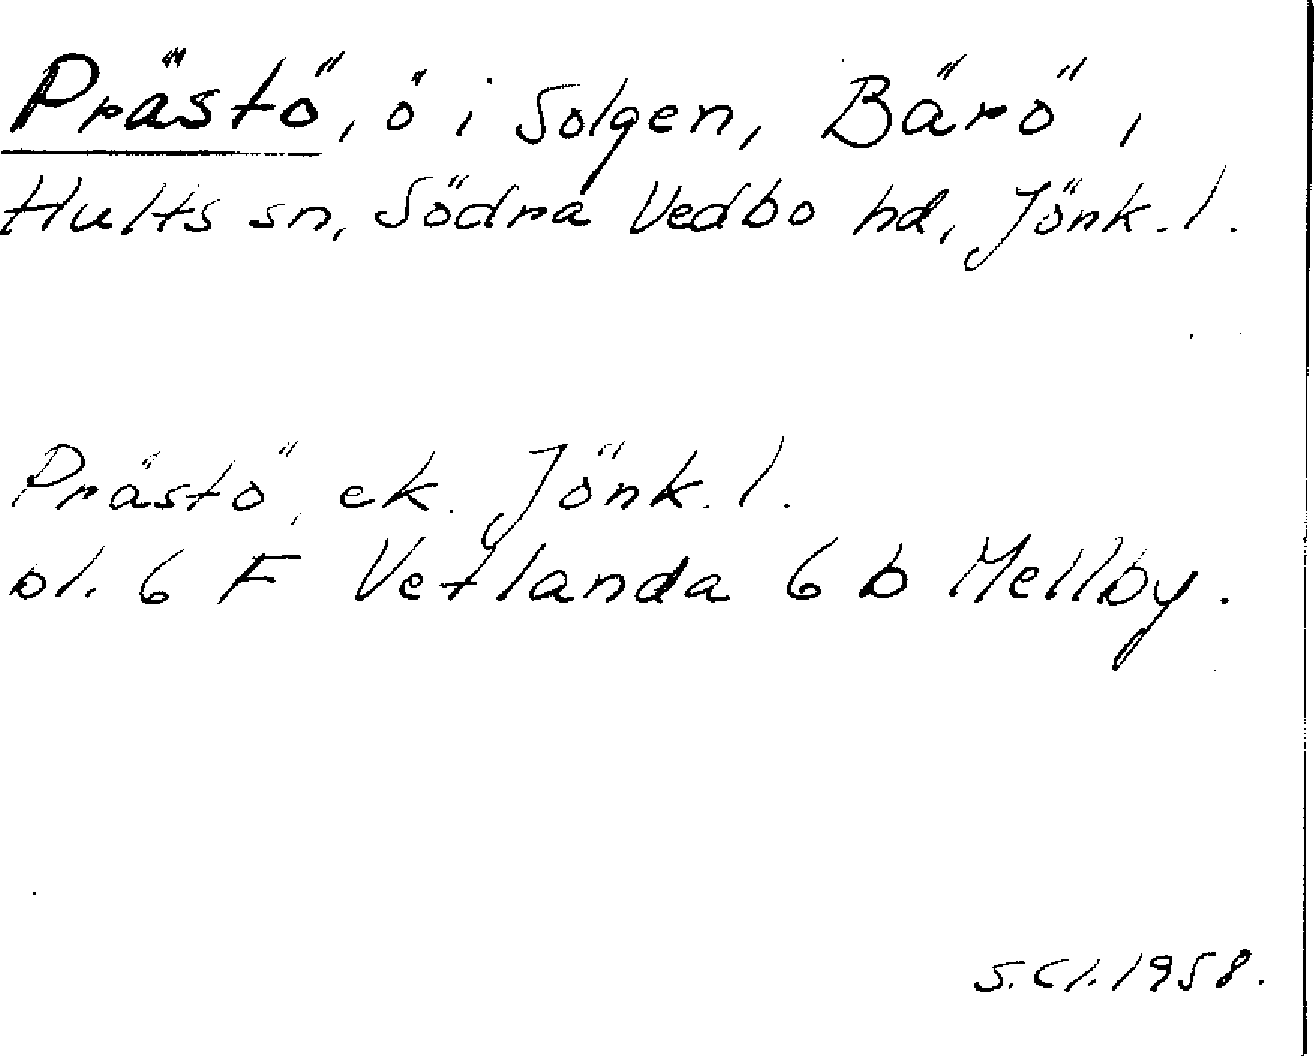 Prästö, ö i Solgen, Bärö,
Hults sn, Södra Vedbo hd, Jönk. l.
Prästö, ek. Jönk. l.
bl. 6 F Vetlanda 6 b Mellby.
S. Cl. 1958.